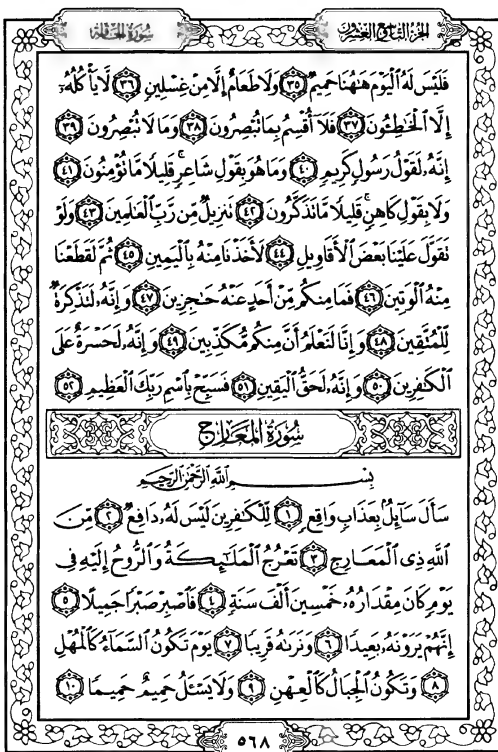 سُورَةُ الحَاقَّةِ
الجُزْءُ التَّاسِعُ وَالعِشْرُونَ
فَلَيْسَ لَهُ ٱلْيَوْمَ هَٰهُنَا حَمِيمٌ ٣٥ وَلَا طَعَامٌ إِلَّا مِنْ غِسْلِينٍ ٣٦ لَّا يَأْكُلُهُۥٓ
إِلَّا ٱلْخَٰطِـُٔونَ ٣٧ فَلَآ أُقْسِمُ بِمَا تُبْصِرُونَ ٣٨ وَمَا لَا تُبْصِرُونَ ٣٩
إِنَّهُۥ لَقَوْلُ رَسُولٍ كَرِيمٍ ٤٠ وَمَا هُوَ بِقَوْلِ شَاعِرٍ ۚ قَلِيلًا مَّا تُؤْمِنُونَ ٤١
وَلَا بِقَوْلِ كَاهِنٍ ۚ قَلِيلًا مَّا تَذَكَّرُونَ ٤٢ تَنزِيلٌ مِّن رَّبِّ ٱلْعَٰلَمِينَ ٤٣ وَلَوْ
تَقَوَّلَ عَلَيْنَا بَعْضَ ٱلْأَقَاوِيلِ ٤٤ لَأَخَذْنَا مِنْهُ بِٱلْيَمِينِ ٤٥ ثُمَّ لَقَطَعْنَا
مِنْهُ ٱلْوَتِينَ ٤٦ فَمَا مِنكُم مِّنْ أَحَدٍ عَنْهُ حَٰجِزِينَ ٤٧ وَإِنَّهُۥ لَتَذْكِرَةٌ
لِّلْمُتَّقِينَ ٤٨ وَإِنَّا لَنَعْلَمُ أَنَّ مِنكُم مُّكَذِّبِينَ ٤٩ وَإِنَّهُۥ لَحَسْرَةٌ عَلَى
ٱلْكَٰفِرِينَ ٥٠ وَإِنَّهُۥ لَحَقُّ ٱلْيَقِينِ ٥١ فَسَبِّحْ بِٱسْمِ رَبِّكَ ٱلْعَظِيمِ ٥٢
سُورَةُ المَعَارِجِ
بِسْمِ ٱللَّهِ ٱلرَّحْمَٰنِ ٱلرَّحِيمِ
سَأَلَ سَآئِلٌۢ بِعَذَابٍ وَاقِعٍ ١ لِّلْكَٰفِرِينَ لَيْسَ لَهُۥ دَافِعٌ ٢ مِّنَ
ٱللَّهِ ذِى ٱلْمَعَارِجِ ٣ تَعْرُجُ ٱلْمَلَٰٓئِكَةُ وَٱلرُّوحُ إِلَيْهِ فِى
يَوْمٍ كَانَ مِقْدَارُهُۥ خَمْسِينَ أَلْفَ سَنَةٍ ٤ فَٱصْبِرْ صَبْرًا جَمِيلًا ٥
إِنَّهُمْ يَرَوْنَهُۥ بَعِيدًا ٦ وَنَرَىٰهُ قَرِيبًا ٧ يَوْمَ تَكُونُ ٱلسَّمَآءُ كَٱلْمُهْلِ
٨ وَتَكُونُ ٱلْجِبَالُ كَٱلْعِهْنِ ٩ وَلَا يَسْـَٔلُ حَمِيمٌ حَمِيمًا ١٠
٥٦٨